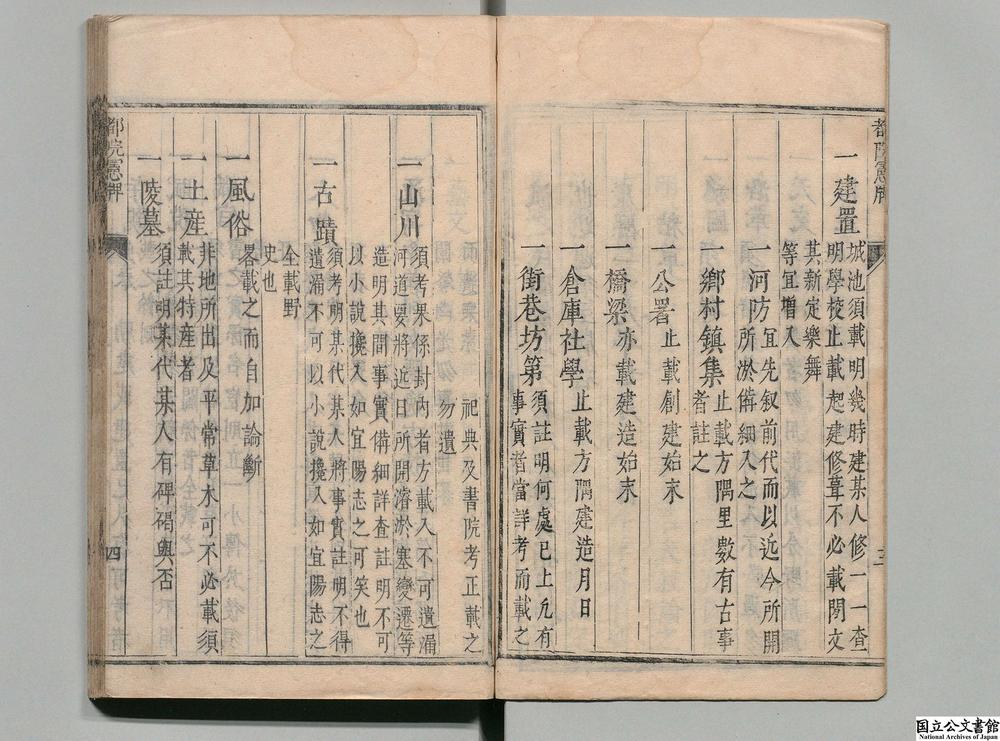 都院憲牌
一建置
城池須載明幾時建某人修一一查
明學校止載起建修葺不必載閑文
其新定樂舞
等宜增入
一河防
宜先叙前代而以近今所開
所淤俻細入之
一鄉村鎮集
止載方隅里數有古事
者註之
一公署止載創建始末
一橋梁亦載建造始末
一倉庫社學止載方隅建造月日
一街巷坊第
須註明何處已上凢有
事實者當詳考而載之
三
祀典及書院考正載之
勿遺
一山川
須考果係封內者方載入不可遺漏
河道要將近日所開濬淤塞變遷等
造明其間事實俻細詳查註明不可
以小說攙入如宜陽志之可笑也
一古蹟
須考明某代某人將事實註明不得
遺漏不可以小說攙入如宜陽志之
全載野
史也
一風俗畧載之而自加論斷
一土産
非地所出及平常草木可不必載須
載其特産者
一陵墓須註明某代某人有碑碣與否
都院憲牌
四
国立公文書館
National Archives of Japan